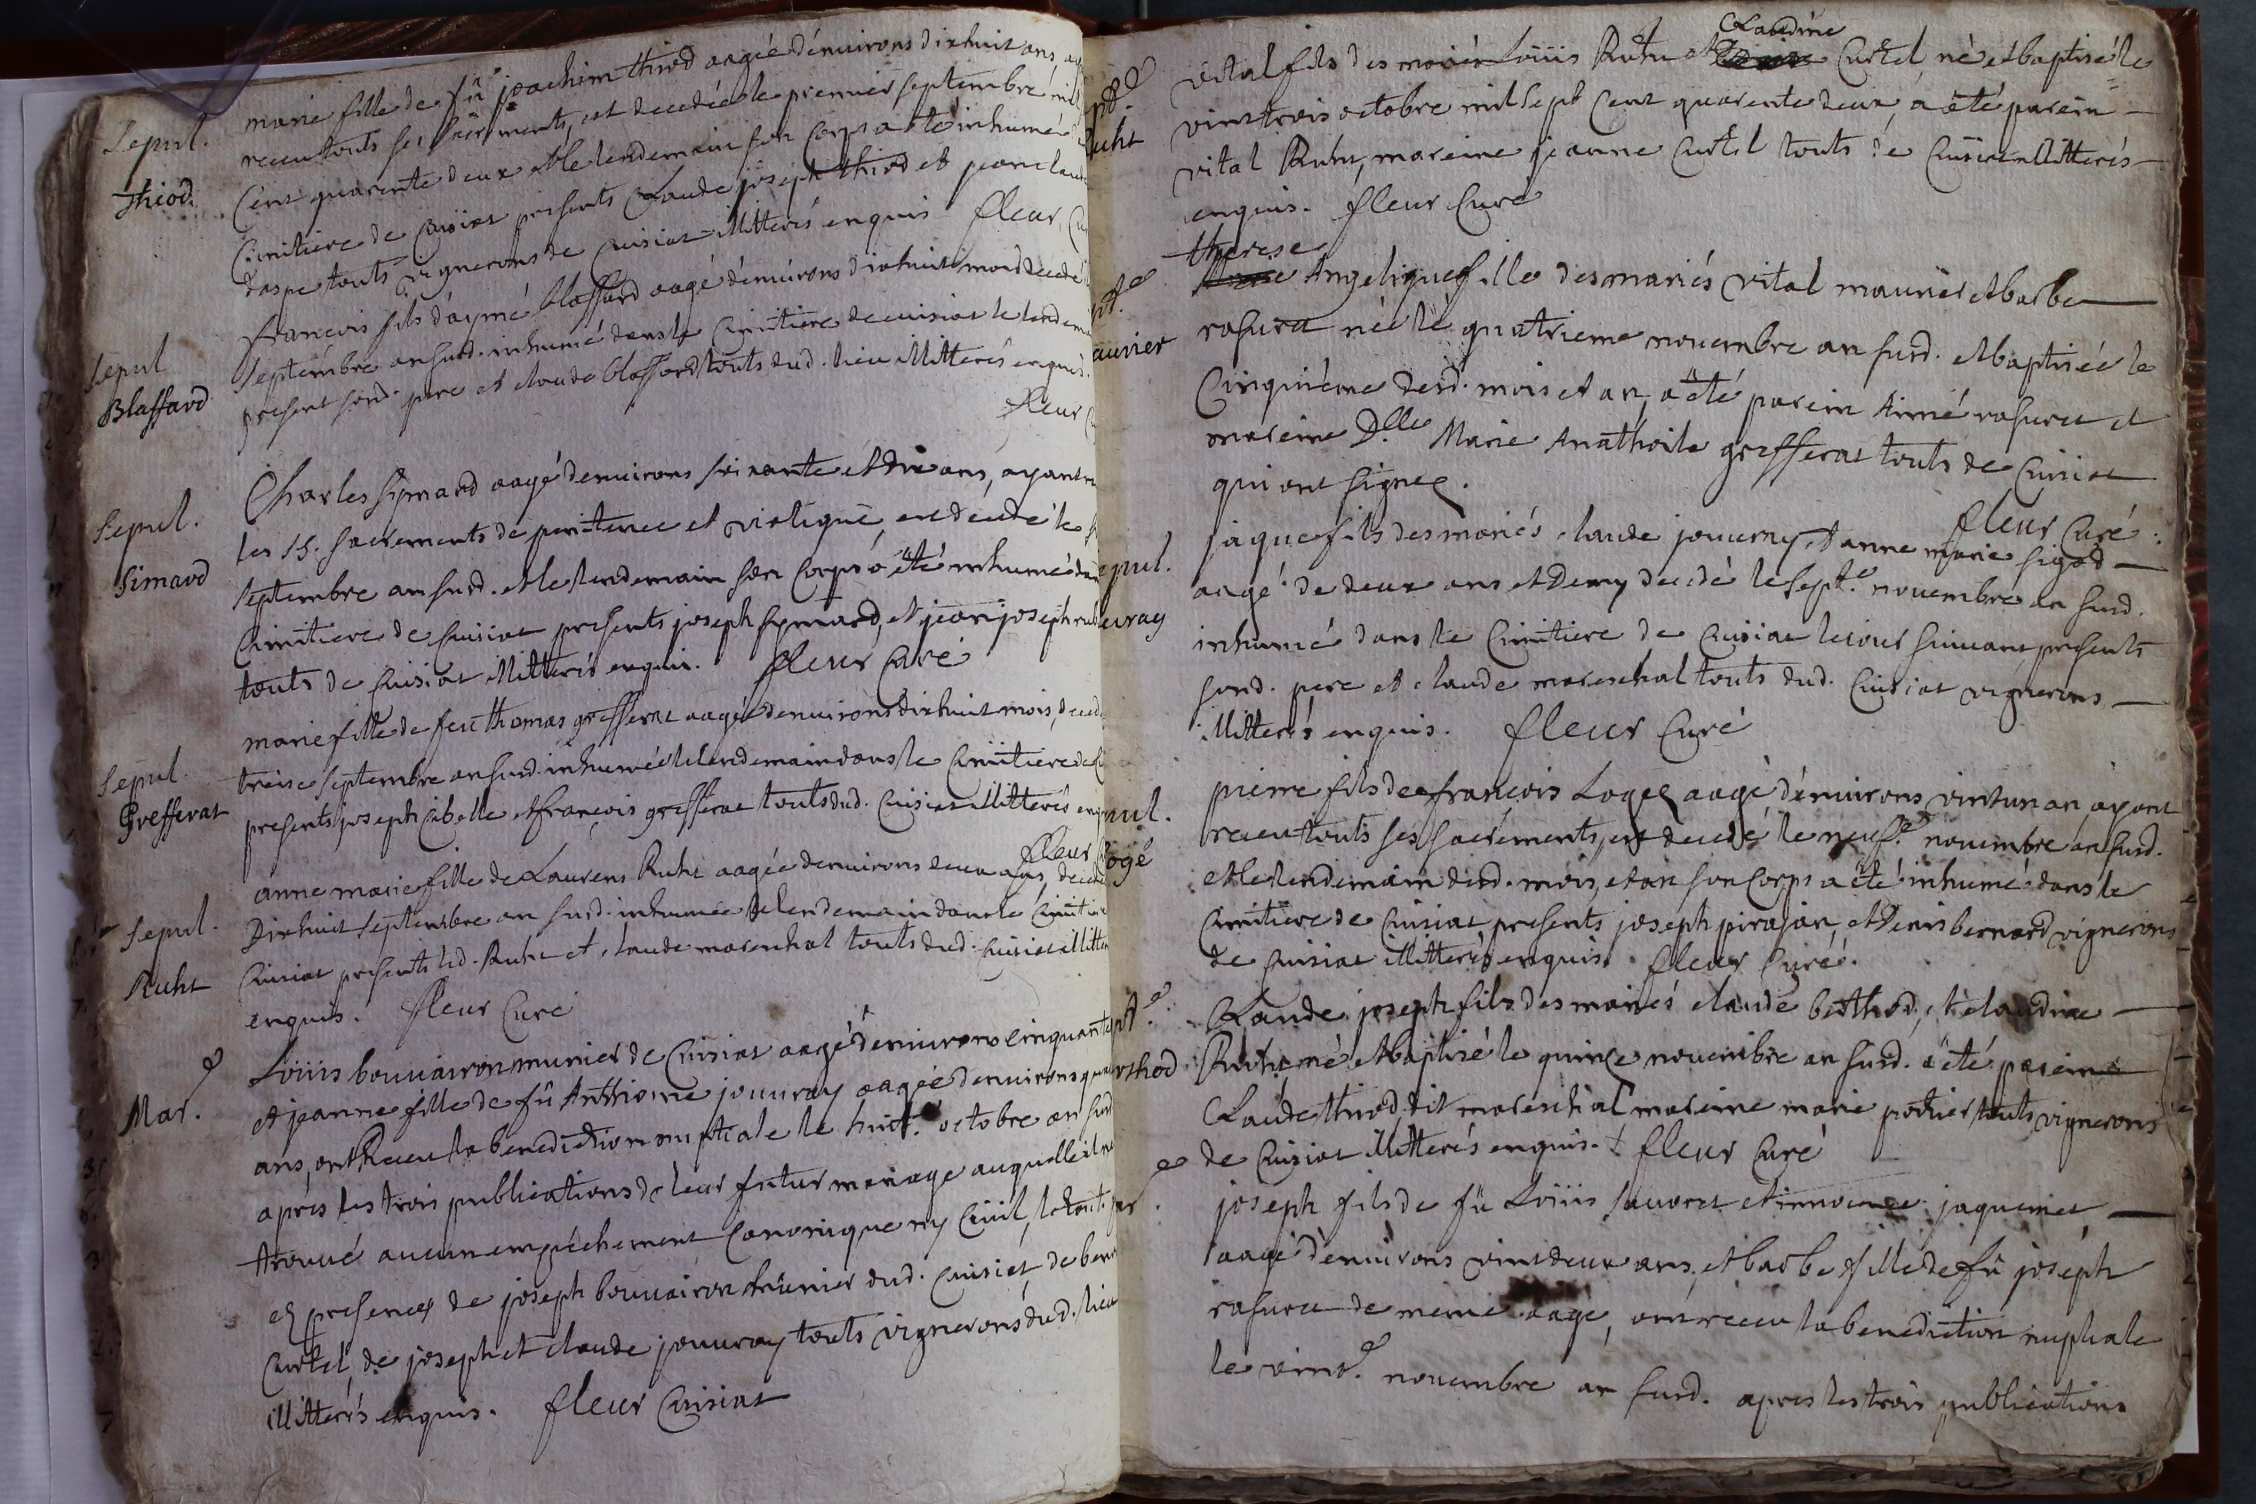 Sepul.
Thiod.
marie fille de fû joachim thiod aagée dénuirons dixhuit ans
receu touts ses sacréments, est decedée le premier septembre mil
Cent quarente deux et le lendemain son corps a été inhumé
Cimitiere de Cuisiat presents Claude joseph thiod et jean claude
daspe touts vignerons de Cuisiat illitterés enquis fleur
Sepul
Blaffard
francois fils d'aymé blaffard aagé d'enuirons dixhuit mois decedé
septembre an susd. inhumé dans le Cimitiere de cuisiat le lendem
present sond. pere et claude blaffard touts dud. lieu illitterés enquis.
fleur
Sepul.
Simard
Charles symard aagé denuirons soixante et dix ans, ayant
les SS. sacrements de penitence et viatique, est decedé le
septembre an susd. et le lendemain son corps a été inhumé dans
Cimitiere de cuisiat presents joseph symard, et jean joseph
touts de Cuisiat illitterés enquis. fleur Curé
Sepul.
Grefferat
marie fille de feu thomas grefferat aagée denuirons dixhuit mois, deced
treise septembre an susd. inhumée le lendemain dans le Cimitiere de
presents joseph Cibelle et francois grefferat touts dud. Cuisiat illitterés en
fleur
Sepul.
Ruht
anne marie fille de Laurens Ruht aagée denuirons deux ans, deced
Dixhuit septembre an susd. inhumée le lendemain dans le Cimitiere
Cuisiat presents led. Ruht et claude mareschal touts dud. cuisiat illitter
enquis. fleur Curé
Mar.e
Loüis bouuairon munier de Cuisiat aagé d'enuirons cinquante
et jeanne fille de fû Anthoine jouuray aagée denuirons qua
ans, ont Receu la benediction nuptiale le huit.e octobre an susd
apres les trois publications de leur futur mariage auquelle il ne
trouué aucun empêchement Canonique ny Ciuil, le tout
en presences de joseph bouuairon munier dud. Cuisiat, de ben
Curtel, de joseph et claude jouuray touts vignerons dud. lieu
illitterés enquis. fleur Cuisiat
uht
Claudine
vital fils des mariés Loüis Ruht et Curtel né et baptisé le
vint trois octobre mil sept Cent quarente deux, a été parein
vital Ruht, mareine jeanne Curtel touts de Cuisiat illitterés
enquis. fleur Curé
auuier
therese
Angelique fille des mariés vital mauuier et barbe
rasuret née le quatrieme nouembre an susd. et baptisée le
Cinquiéme desd. mois et an, a été parein Aimé rasuret et
mareine D.lle Marie Anathoile grefferat touts de Cuisiat
qui ont signés.
fleur Curé.
epul.
uvray
jaque fils des mariés claude jouuray et anne marie sigod
aagé de deux ans et Demy decedé le sept.e nouembre an susd.
inhumé dans le Cimitiere de Cuisiat le iour suiuant presents
sond. pere et claude mareschal touts dud. Cuisiat vignerons
illitterés enquis. fleur Curé
pul.
ogé
pierre fils de francois Logeé aagé d'enuirons vint un an ayant
receu touts ses sacréments, est decedé le neuf.e nouembre an susd.
et le lendemain desd. mois, et an son Corps a été inhumé dans le
Cimitiere de Cuisiat, presents joseph pirajan, et Denis bernard vignerons
de Cuisiat illitterés enquis. fleur Curé.
rthod
Claude joseph fils des mariés claude berthod, et claudine
Ruht, né et baptisé le quinse nouembre an susd. a été parein
Claude thiod dit mareschal, mareine marie potier touts vignerons
de Cuisiat illitterés enquis. fleur Curé
ar.
joseph fils de fû Loüis sauoret et jaquemet
aagé d'enuirons vint deux ans, et barbe fille de fû joseph
rasuret de meme aage, ont receu la benediction nuptiale
le vint.e nouembre an susd. apres les trois publications